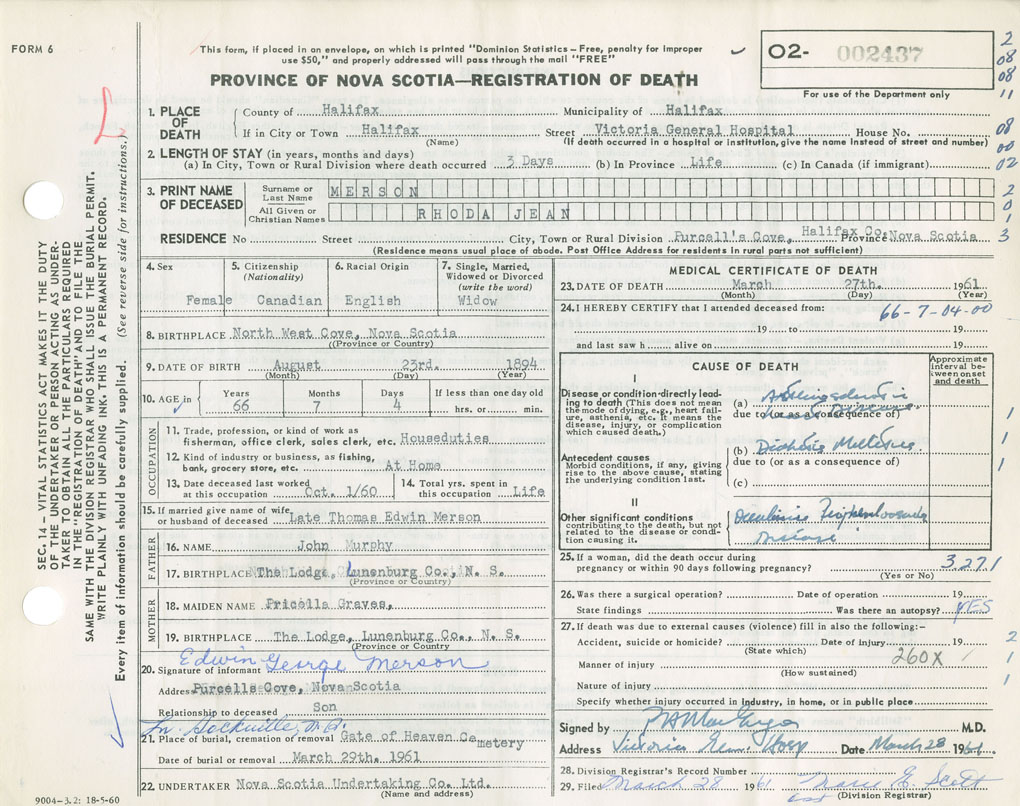 FORM 6
This form, if placed in an envelope, on which is printed "Dominion Statistics—Free, penalty for improper
use $50," and properly addressed will pass through the mail "FREE"
PROVINCE OF NOVA SCOTIA—REGISTRATION OF DEATH
O2- 002437
For use of the Department only
2
08
08
11
08
00
02
2
0
1
3
SEC. 14—VITAL STATISTICS ACT MAKES IT THE DUTY
OF THE UNDERTAKER OR PERSON ACTING AS UNDER-
TAKER TO OBTAIN ALL THE PARTICULARS REQUIRED
IN THE "REGISTRATION OF DEATH" AND TO FILE THE
SAME WITH THE DIVISION REGISTRAR WHO SHALL ISSUE THE BURIAL PERMIT.
WRITE PLAINLY WITH UNFADING INK. THIS IS A PERMANENT RECORD.
Every item of information should be carefully supplied. (See reverse side for instructions.)
1. PLACE OF DEATH
County of Halifax Municipality of Halifax
If in City or Town Halifax Street Victoria General Hospital House No.
(Name) (If death occurred in a hospital or institution, give the name instead of street and number)
2. LENGTH OF STAY (in years, months and days)
(a) In City, Town or Rural Division where death occurred 3 Days (b) In Province Life (c) In Canada (if immigrant)
3. PRINT NAME OF DECEASED
Surname or Last Name MERSON
All Given or Christian Names RHODA JEAN
RESIDENCE No Street City, Town or Rural Division Purcell's Cove, Halifax Co. Province Nova Scotia
(Residence means usual place of abode. Post Office Address for residents in rural parts not sufficient)
4. Sex Female
5. Citizenship (Nationality) Canadian
6. Racial Origin English
7. Single, Married, Widowed or Divorced (write the word) Widow
8. BIRTHPLACE North West Cove, Nova Scotia
(Province or Country)
9. DATE OF BIRTH August 23rd. 1894
(Month) (Day) (Year)
10. AGE in Years 66 Months 7 Days 4 If less than one day old hrs. or min.
OCCUPATION
11. Trade, profession, or kind of work as
fisherman, office clerk, sales clerk, etc. Houseduties
12. Kind of industry or business, as fishing,
bank, grocery store, etc. At Home
13. Date deceased last worked
at this occupation Oct. 1/60
14. Total yrs. spent in
this occupation Life
15. If married give name of wife
or husband of deceased Late Thomas Edwin Merson
FATHER
16. NAME John Murphy
17. BIRTHPLACE The Lodge, Lunenburg Co., N. S.
(Province or Country)
MOTHER
18. MAIDEN NAME Pricella Graves,
19. BIRTHPLACE The Lodge, Lunenburg Co., N. S.
(Province or Country)
20. Signature of informant Edwin George Merson
Address Purcells Cove, Nova Scotia
Relationship to deceased Son
21. Place of burial, cremation or removal Gate of Heaven Cemetery
Date of burial or removal March 29th. 1961
22. UNDERTAKER Nova Scotia Undertaking Co. Ltd.
(Name and address)
9004-3.2: 18-5-60
MEDICAL CERTIFICATE OF DEATH
23. DATE OF DEATH March 27th. 1961
(Month) (Day) (Year)
24. I HEREBY CERTIFY that I attended deceased from: 66-7-04-00
19 to 19
and last saw h alive on 19
CAUSE OF DEATH
Approximate interval between onset and death
I
Disease or condition directly leading to death (This does not mean
the mode of dying, e.g., heart failure, asthenia, etc. It means the
disease, injury, or complication which caused death.)
(a)
due to (or as a consequence of)
1
Antecedent causes
Morbid conditions, if any, giving rise to the above cause, stating
the underlying condition last.
(b)
due to (or as a consequence of)
(c)
1
1
II
Other significant conditions
contributing to the death, but not related to the disease or condition causing it.
Disease
1
25. If a woman, did the death occur during
pregnancy or within 90 days following pregnancy? 3271
(Yes or No)
26. Was there a surgical operation? Date of operation 19
State findings Was there an autopsy? YES
27. If death was due to external causes (violence) fill in also the following:—
Accident, suicide or homicide? Date of injury 19
(State which)
260X
Manner of injury
(How sustained)
Nature of injury
Specify whether injury occurred in industry, in home, or in public place
2
1
1
Signed by M.D.
Address Victoria Gen. Hosp Date March 28 1961
28. Division Registrar's Record Number
29. Filed March 28 1961 Scott
(Division Registrar)